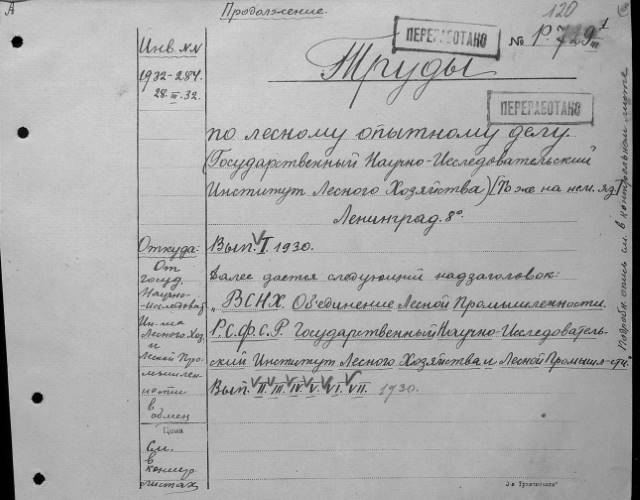 А
Продолжение
120
ПЕРЕРАБОТАНО
№ Р.729
Труды
ПЕРЕРАБОТАНО
Инв. №№
1932-284.
28.III.32.
по лесному опытному делу
(Государственный Научно-Исследовательский
Институт Лесного Хозяйства) [То же на нем. яз.]
Ленинград. 8°.
Откуда:
От
Госуд.
Научно-
исследоват
Ин-та
Лесного Хоз.
и
Лесной Про-
мышлен-
ности
в
обмен
Цена
См.
в
контр
листах
Вып. I. 1930.
Далее дается следующий надзаголовок:
„ВСНХ. Объединение Лесной Промышленности.
Р.С.Ф.С.Р. Государственный Научно-Исследователь-
ский Институт Лесного Хозяйства и Лесной Промышл-сти"
Вып. II. III. IV. V. VI. VII. 1930.
Подробн. опись см. в контрольном листе